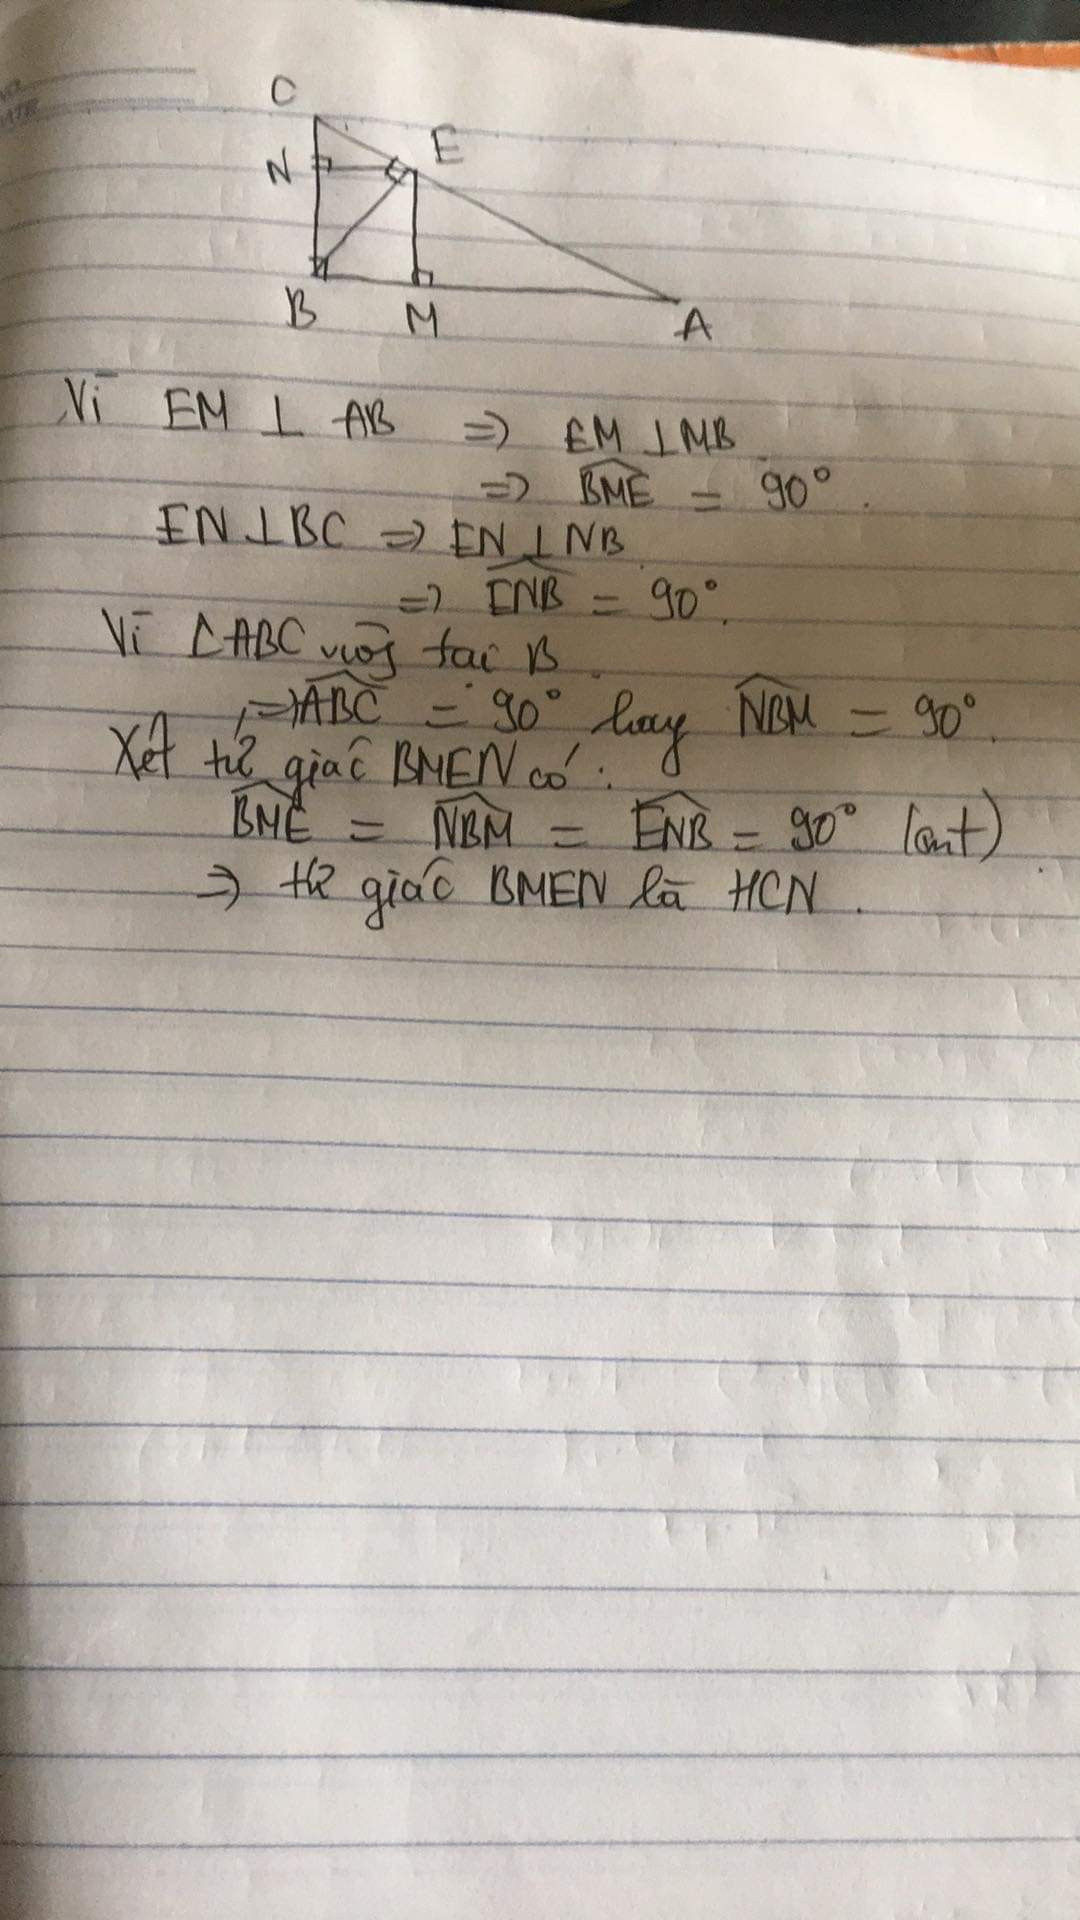 NO.
DATE
C
N
E
B
M
A
Vì EM ⊥ AB => EM ⊥ MB
=> \widehat{BME} = 90°.
EN ⊥ BC => EN ⊥ NB
=> \widehat{ENB} = 90°.
Vì △ABC vuông tại B.
=> \widehat{ABC} = 90° hay \widehat{NBM} = 90°.
Xét tứ giác BMEN có:
\widehat{BME} = \widehat{NBM} = \widehat{ENB} = 90° (cmt)
=> tứ giác BMEN là HCN.